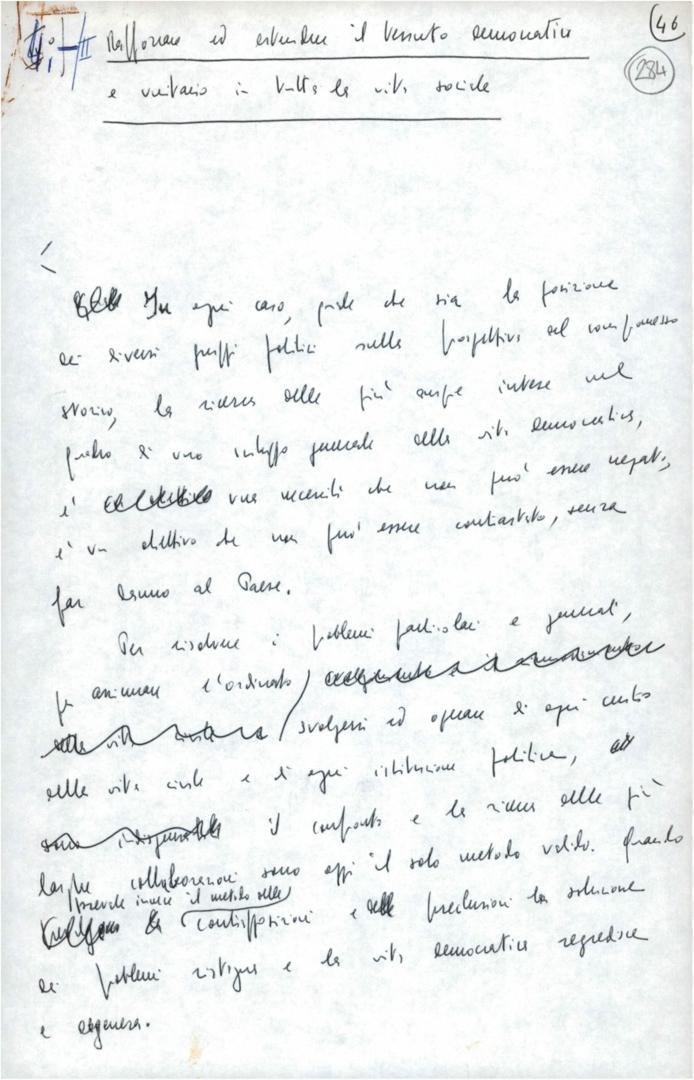 46
284
Rafforzare ed estendere il tessuto democratico
e unitario in tutta la vita sociale
In ogni caso, quale che sia la posizione
dei diversi gruppi politici sulla prospettiva del compromesso
storico, la ricerca delle più ampie intese nel
quadro di uno sviluppo generale della vita democratica,
è una necessità che non può essere negata,
è un obiettivo che non può essere contrastato, senza
far danno al Paese.
Per risolvere i problemi particolari e generali,
per assicurare l'ordinato
svolgersi ed operare di ogni centro
della vita civile e di ogni istituzione politica,
il confronto e la ricerca delle più
larghe collaborazioni sono oggi il solo metodo valido. Quando
prevale invece il metodo delle
contrapposizioni e delle preclusioni la soluzione
dei problemi ristagna e la vita democratica regredisce
e degenera.